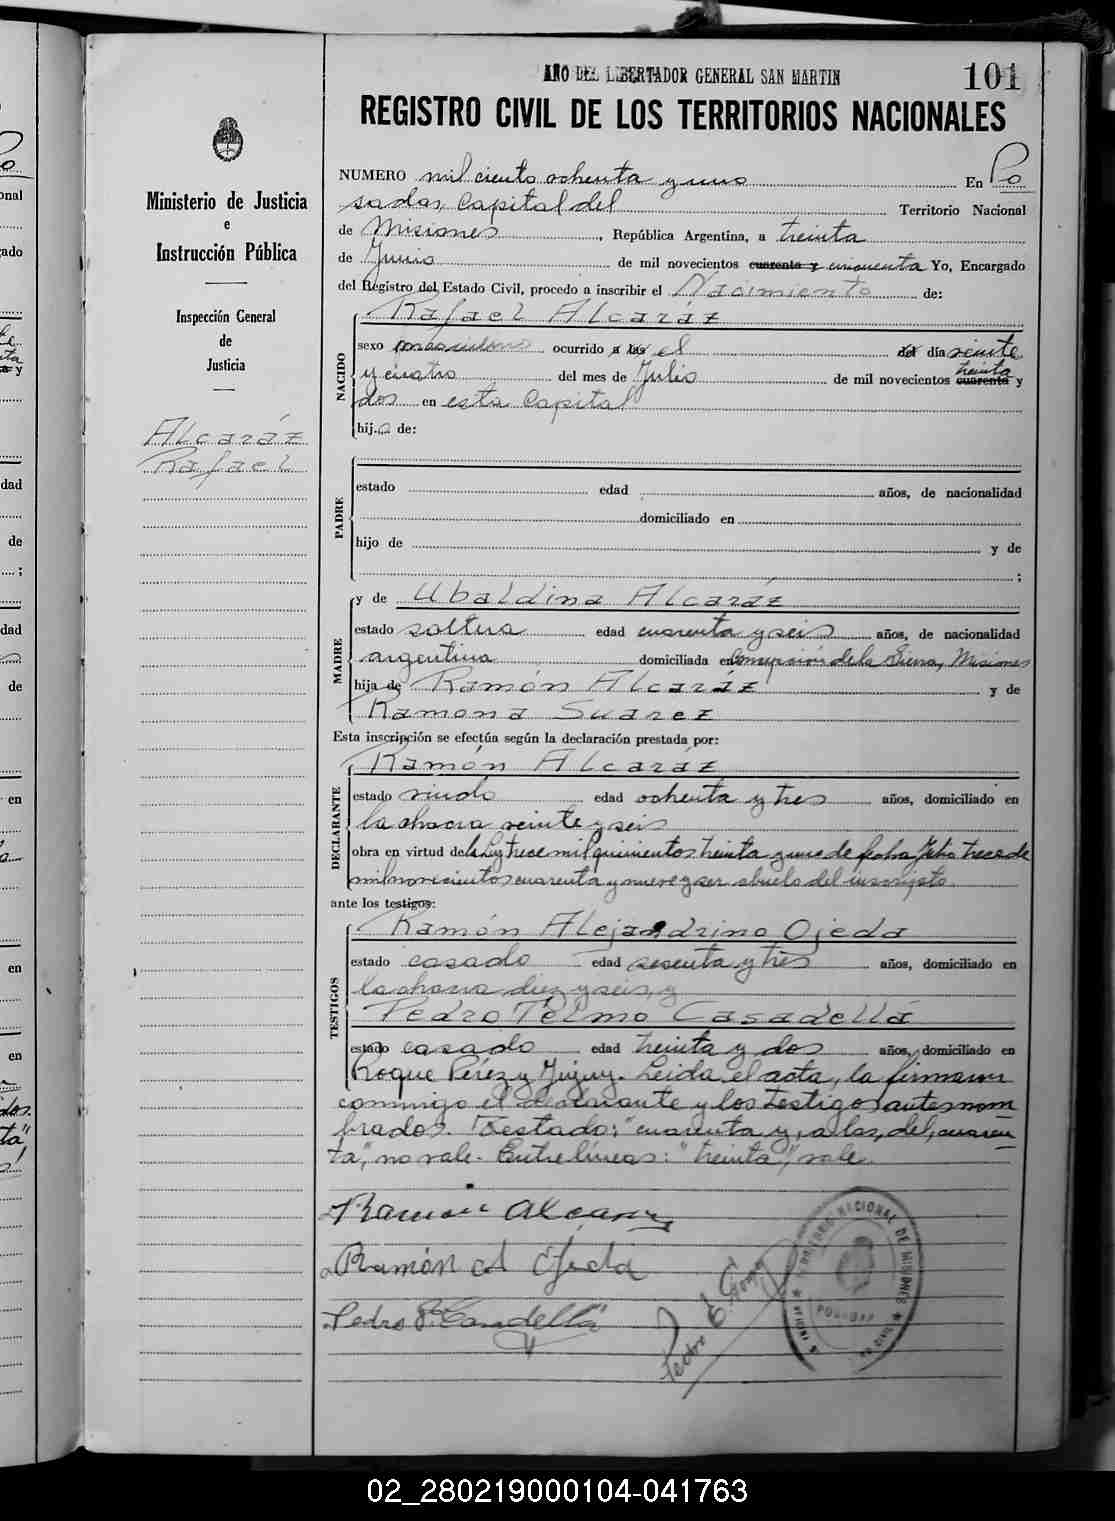 AÑO DEL LIBERTADOR GENERAL SAN MARTIN
101
REGISTRO CIVIL DE LOS TERRITORIOS NACIONALES
Ministerio de Justicia
e
Instrucción Pública
Inspección General
de
Justicia
Alcaráz
Rafael
NUMERO mil ciento ochenta y uno En Po
sadas, Capital del Territorio Nacional
de Misiones, República Argentina, a treinta
de Junio de mil novecientos cuarenta y cincuenta Yo, Encargado
del Registro del Estado Civil, procedo a inscribir el Nacimiento de:
NACIDO
Rafael Alcaráz
sexo masculino ocurrido a las el del día veinte
treinta
y cuatro del mes de Julio de mil novecientos cuarenta y
dos en esta Capital
hijo de:
PADRE
estado edad años, de nacionalidad
domiciliado en
hijo de y de
;
MADRE
y de Ubaldina Alcaráz
estado soltera edad cuarenta y seis años, de nacionalidad
argentina domiciliada en Concepción de la Sierra, Misiones
hija de Ramón Alcaráz y de
Ramona Suarez
Esta inscripción se efectúa según la declaración prestada por:
DECLARANTE
Ramón Alcaráz
estado viudo edad ochenta y tres años, domiciliado en
la chacra veinte y seis
obra en virtud de la Ley trece mil quinientos treinta y uno de fecha Julio trece de
mil novecientos cuarenta y nueve y ser abuelo del inscripto.
ante los testigos:
TESTIGOS
Ramón Alejandrino Ojeda
estado casado edad sesenta y tres años, domiciliado en
la chacra diez y seis, y
Pedro Telmo Casadellá
estado casado edad treinta y dos años, domiciliado en
Roque Pérez y Jujuy. Leida el acta, la firmaron
conmigo el declarante y los testigos antes nom
brados. Testado: "cuarenta y, a las, del, cuaren
ta", no vale. Entre líneas: "treinta", vale.
Ramón Alcaraz
Ramón A Ojeda
Pedro T. Casadellá
Pedro
TERRITORIO NACIONAL DE MISIONES
POSADAS
02_280219000104-041763